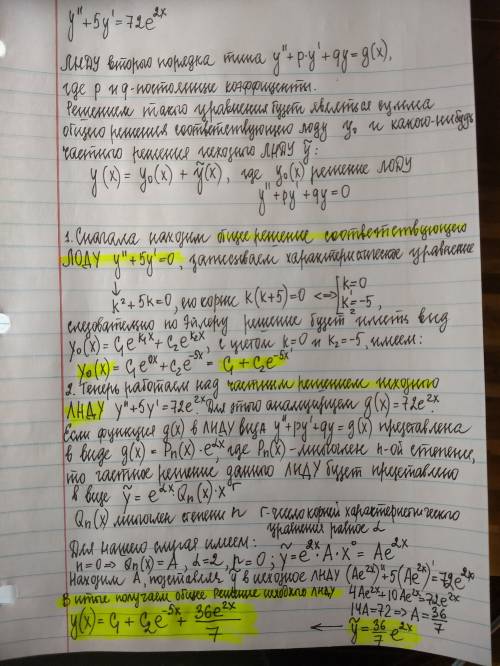 y"+5y'=72e^{2x}
ЛНДУ второго порядка типа y"+p·y'+qy=g(x),
где p и q-постоянные коэффициенты.
Решением такого уравнения будет являться сумма
общего решения соответствующего лоду y₀ и какого-нибудь
частного решения исходного ЛНДУ ỹ:
y(x)=y₀(x)+ỹ(x), где y₀(x) решение ЛОДУ
y"+py'+qy=0
1. Сначала находим общее решение соответствующего
ЛОДУ y"+5y'=0, записываем характеристическое уравнение
↓
k²+5k=0, его корни k(k+5)=0 <=> [k₁=0 k₂=-5,
следовательно по Эйлеру решение будет иметь вид
y₀(x)=C₁e^{k₁x}+C₂e^{k₂x}, с учетом k=0 и k₂=-5, имеем:
y₀(x)=C₁e^{0x}+C₂e^{-5x}=C₁+C₂e^{-5x}
2. Теперь работаем над частным решением исходного
ЛНДУ y"+5y'=72e^{2x}. Для этого анализируем g(x)=72e^{2x}.
Если функция g(x) в ЛНДУ вида y"+py'+qy=g(x) представлена
в виде g(x)=Pₙ(x)·e^{αx}, где Pₙ(x)-многочлен n-ой степени,
то частное решение данного ЛНДУ будет представлено
в виде ỹ=e^{αx}Qₙ(x)·x^r
Qₙ(x) многочлен степени n r-число корней характеристического
уравнения равное α
Для нашего случая имеем:
n=0 => Qₙ(x)=A, α=2, r=0; ỹ=e^{2x}·A·x⁰=Ae^{2x}
Находим A, подставляя ỹ в исходное ЛНДУ (Ae^{2x})"+5(Ae^{2x})'=72e^{2x}
4Ae^{2x}+10Ae^{2x}=72e^{2x}
В итоге получаем общее решение исходного ЛНДУ
14A=72 => A=36/7
y(x)=C₁+C₂e^{-5x}+36e^{2x}/7 ← ỹ=36/7 e^{2x}